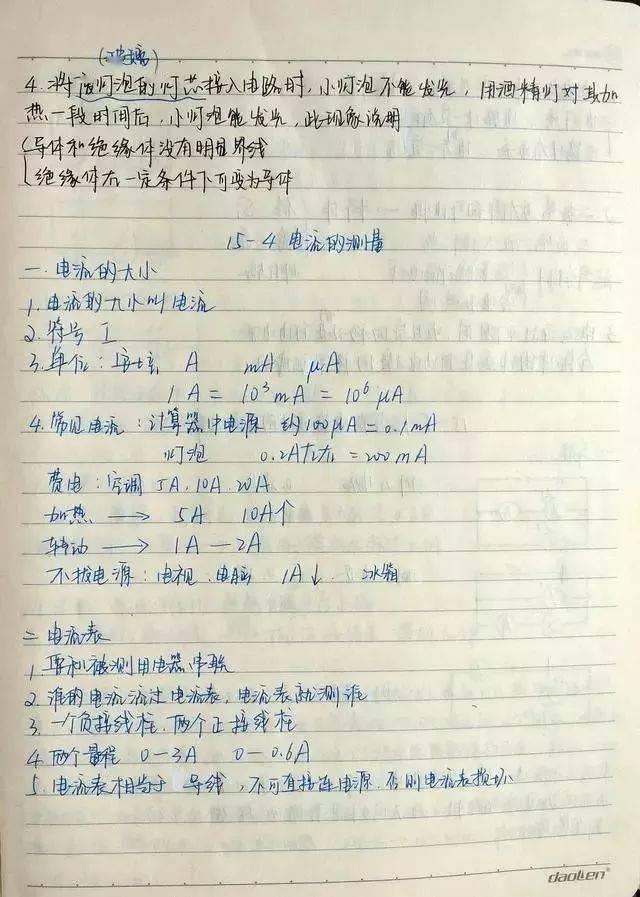 (玻璃)
4. 将废灯泡的灯芯接入电路时,小灯泡不能发光,用酒精灯对其加
热一段时间后,小灯泡能发光,此现象说明
导体和绝缘体没有明显界线
绝缘体在一定条件下可变为导体
15-4 电流的测量
一. 电流的大小
1. 电流的大小叫电流
2. 符号 I
3. 单位: 安培 A mA μA
1 A = 10³ mA = 10⁶ μA
4. 常见电流: 计算器中电源 约100μA = 0.1mA
灯泡 0.2A左右 = 200mA
费电: 空调 5A. 10A. 20A
加热 → 5A 10A个
转动 → 1A — 2A
不拔电源: 电视. 电脑 1A↓. 冰箱
二 电流表
1. 要和被测用电器串联
2. 谁的电流流过电流表, 电流表就测谁
3. 一个负接线柱. 两个正接线柱
4. 两个量程 0-3A 0-0.6A
5. 电流表相当于 导线, 不可直接连电源. 否则电流表损坏
daolien